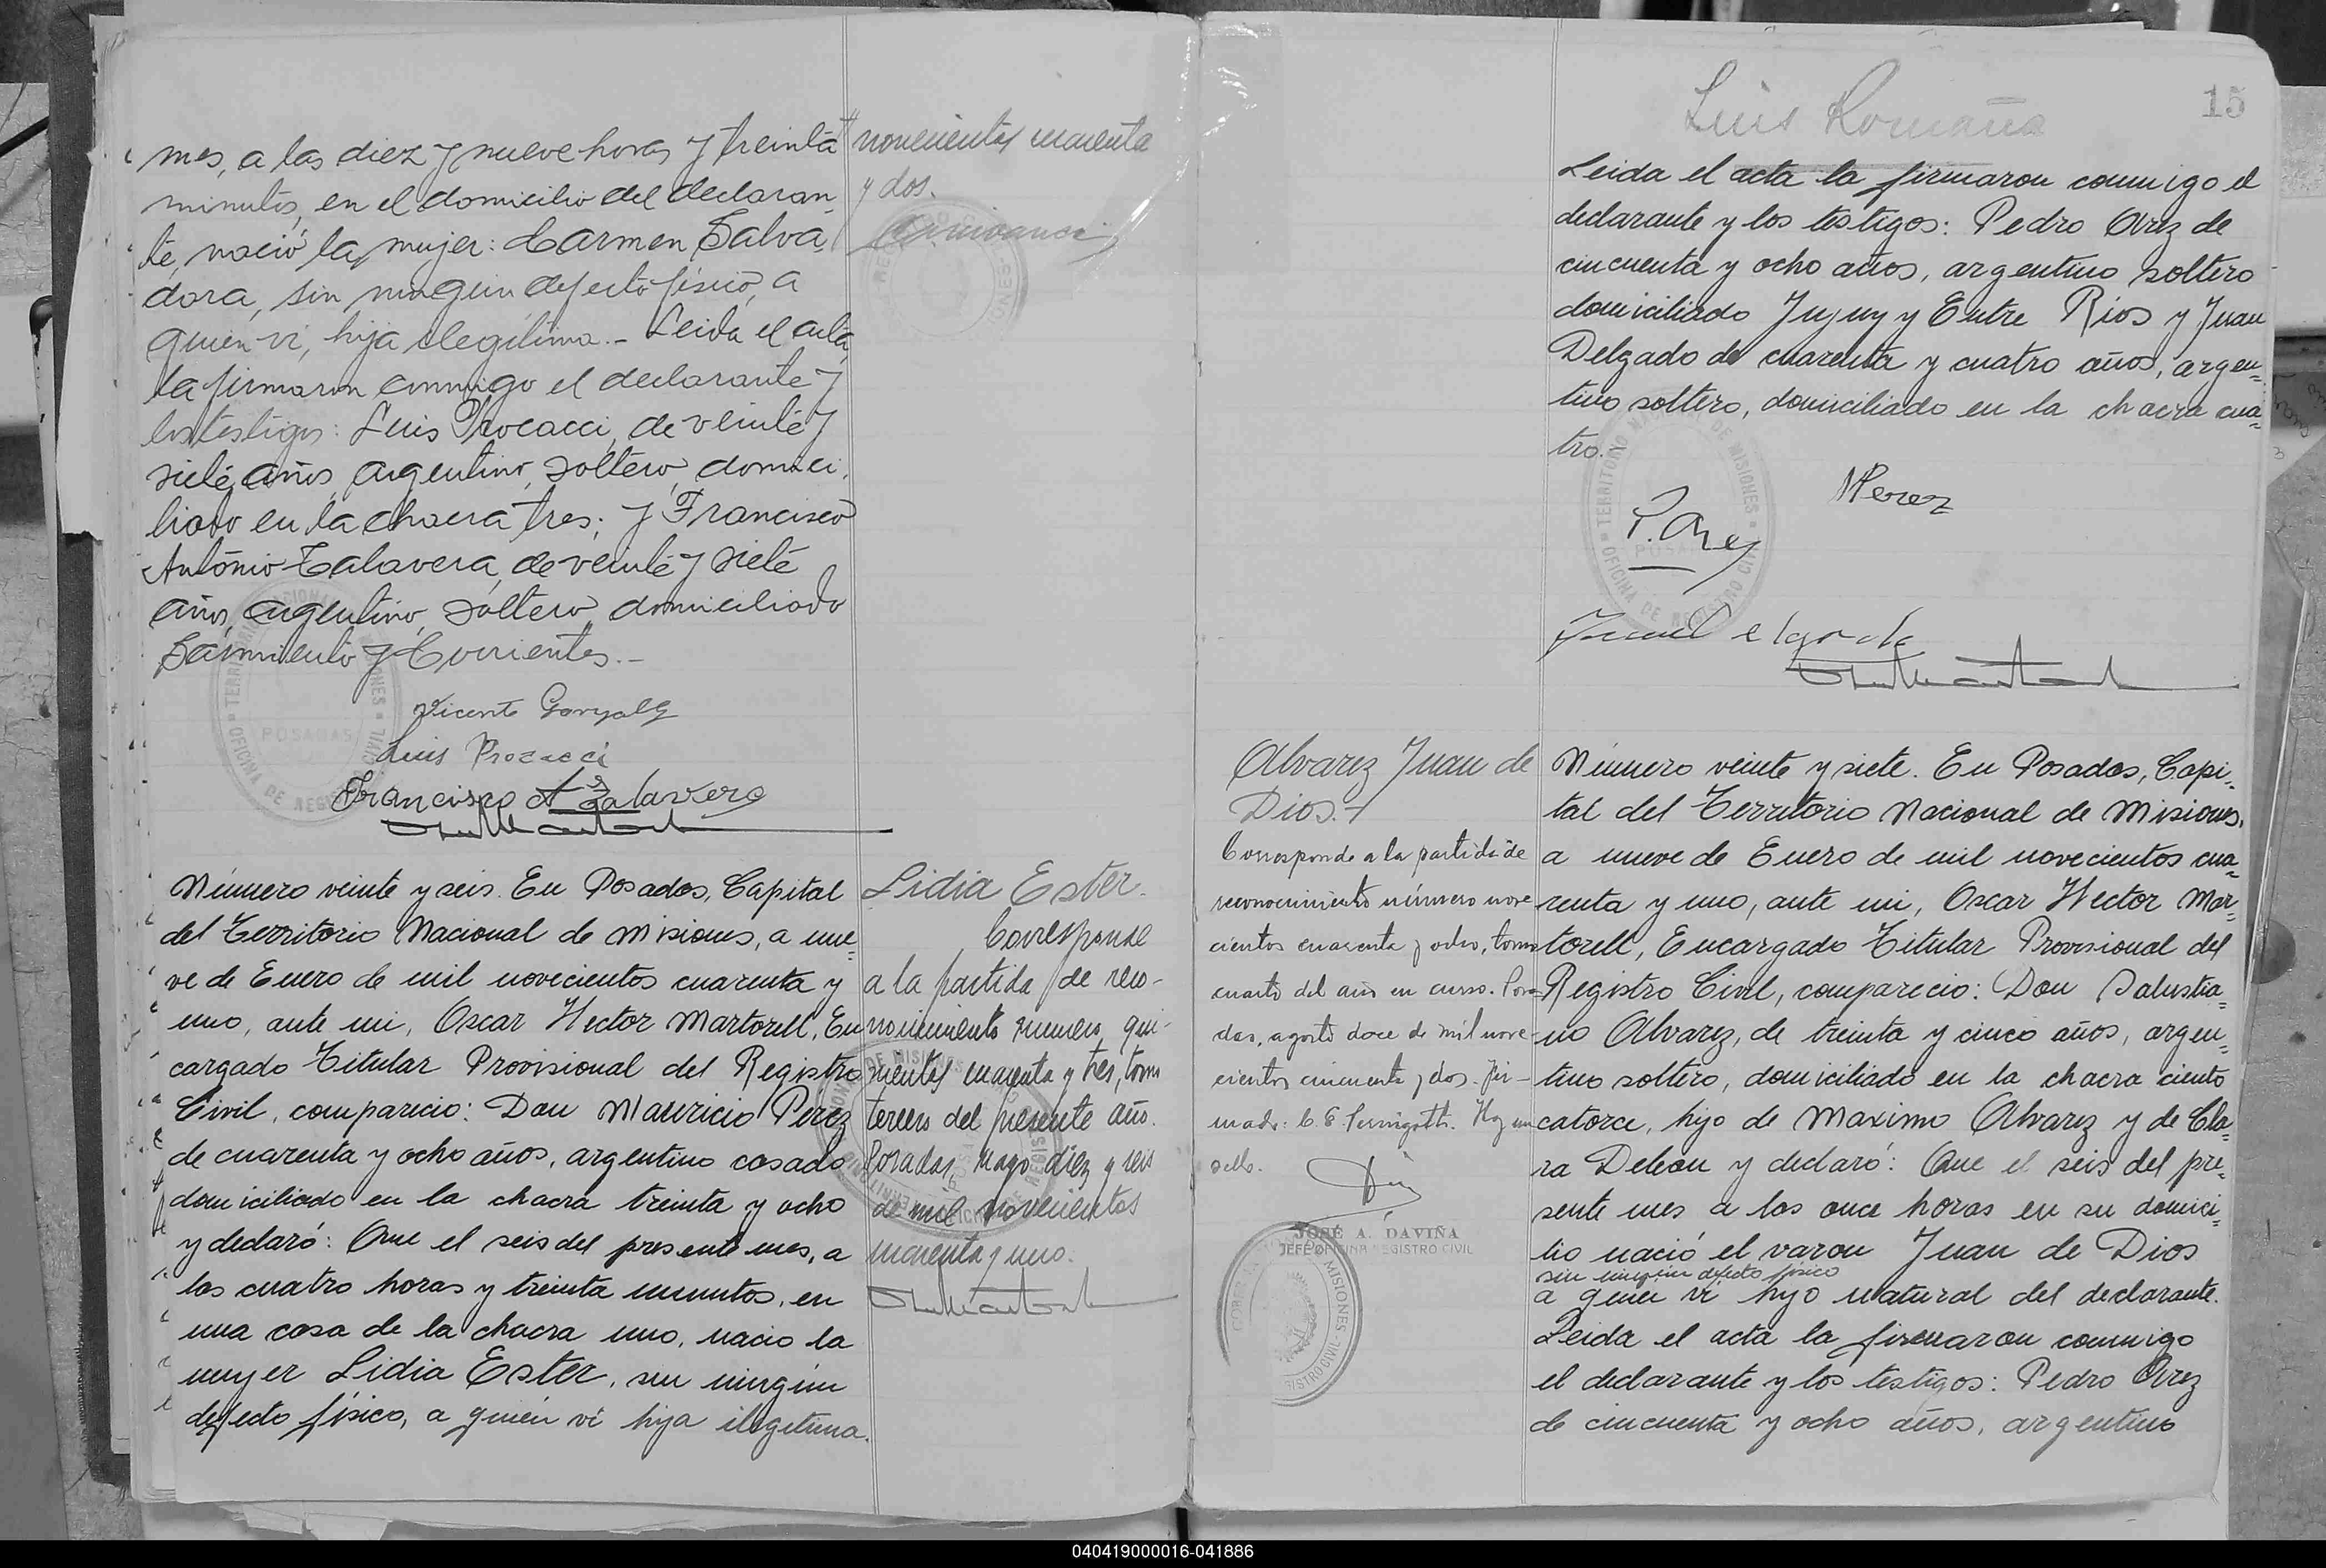 mes, a las diez y nueve horas y treinta
minutos, en el domicilio del declaran-
te, nació la mujer: Carmen Salva-
dora, sin ningún defecto físico, a
quien vi, hija ilegítima.- Leida el acta,
la firmaron conmigo el declarante y
los testigos: Luis Procacci, de veinte y
siete años, argentino, soltero, domici-
liado en la chacra tres; y Francisco
Antonio Talavera, de veinte y siete
años, argentino, soltero, domiciliado
Sarmiento y Corrientes.-
Vicente Gonzalez
Luis Procacci
Francisco A Talavera
novecientos cuarenta
y dos.
Número veinte y seis. En Posadas, Capital
del Territorio Nacional de Misiones, a nue=
ve de Enero de mil novecientos cuarenta y
uno, ante mi, Oscar Hector Martorell, En
cargado Titular Provisional del Registro
Civil, comparecio: Don Mauricio Perez
de cuarenta y ocho años, argentino casado
domiciliado en la chacra treinta y ocho
y declaró: Que el seis del presente mes, a
las cuatro horas y treinta minutos, en
una casa de la chacra uno, nacio la
mujer Lidia Ester, sin ningún
defecto físico, a quién vi hija ilegitima.
Lidia Ester.
Corresponde
a la partida de reco-
nocimiento número, qui-
nientos cuarenta y tres, tomo
tercero del presente año.
Posadas, mayo diez y seis
de mil novecientos
cuarenta y uno.
15
Luis Romaña
Leida el acta la firmaron conmigo el
declarante y los testigos: Pedro Arez de
cincuenta y ocho años, argentino soltero
domiciliado Jujuy y Entre Rios y Juan
Delgado de cuarenta y cuatro años, argen=
tino soltero, domiciliado en la chacra cua=
tro.-
TERRITORIO NACIONAL DE MISIONES
OFICINA DE REGISTRO CIVIL
POSADAS
MPerez
P. Arez
Juan Delgado
Alvarez Juan de
Dios.+
Corresponde a la partida de
reconocimiento número nove
cientos cuarenta y ocho, tomo
cuarto del año en curso. Posa
das, agosto doce de mil nove-
cientos cincuenta y dos. Fir-
mado: C. E. Hay un
sello.
JOSÉ A. DAVIÑA
JEFE OFICINA REGISTRO CIVIL
Número veinte y siete. En Posadas, Capi=
tal del Territorio Nacional de Misiones,
a nueve de Enero de mil novecientos cua=
renta y uno, ante mi, Oscar Hector Mar=
torell, Encargado Titular Provisional del
Registro Civil, comparecio: Don Salustia=
no Alvarez, de treinta y cinco años, argen=
tino soltero, domiciliado en la chacra ciento
catorce, hijo de Maximo Alvarez y de Cla=
ra Deleon y declaró: Que el seis del pre=
sente mes a las once horas en su domici=
lio nació el varon Juan de Dios
sin ningún defecto físico
a quien vi hijo natural del declarante.
Leida el acta la firmaron conmigo
el declarante y los testigos: Pedro Arez
de cincuenta y ocho años, argentino
040419000016-041886